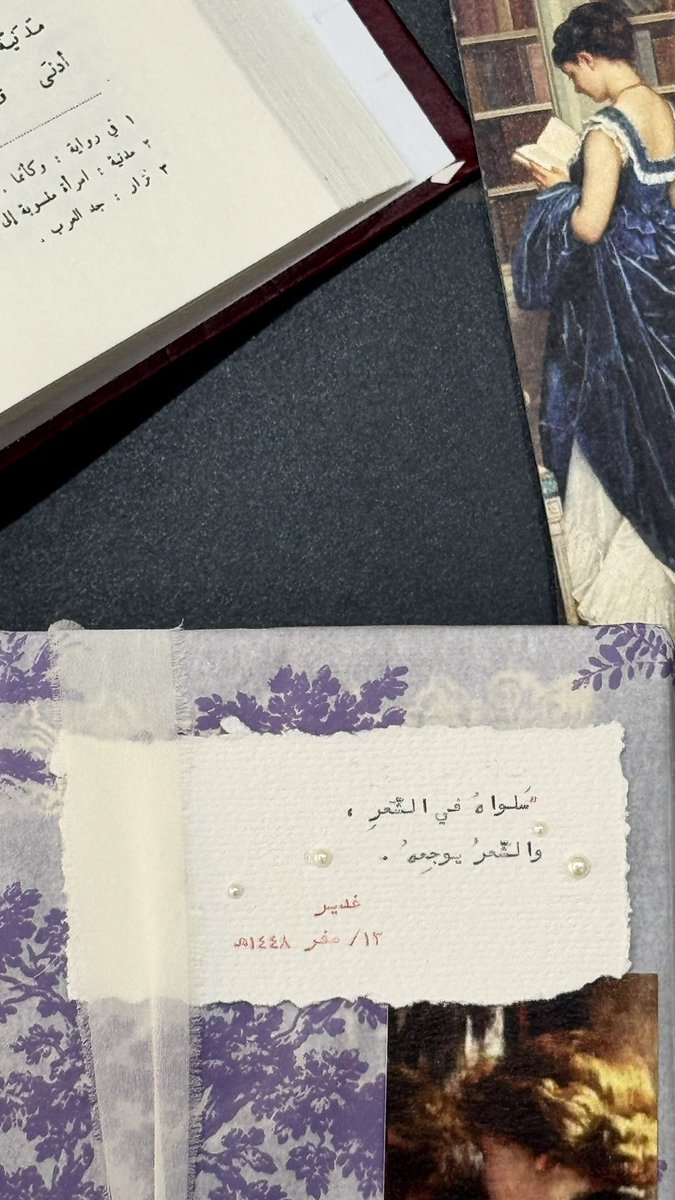 مدنية
أدنى
١ في رواية : وكأنما .
٢ مدنية : امرأة منسوبة إلى
٣ نزار : جد العرب .
"سَلواهُ في الشّعرِ ،
والشّعرُ يوجِعهُ .
غدير
١٣/ صفر ١٤٤٨هـ